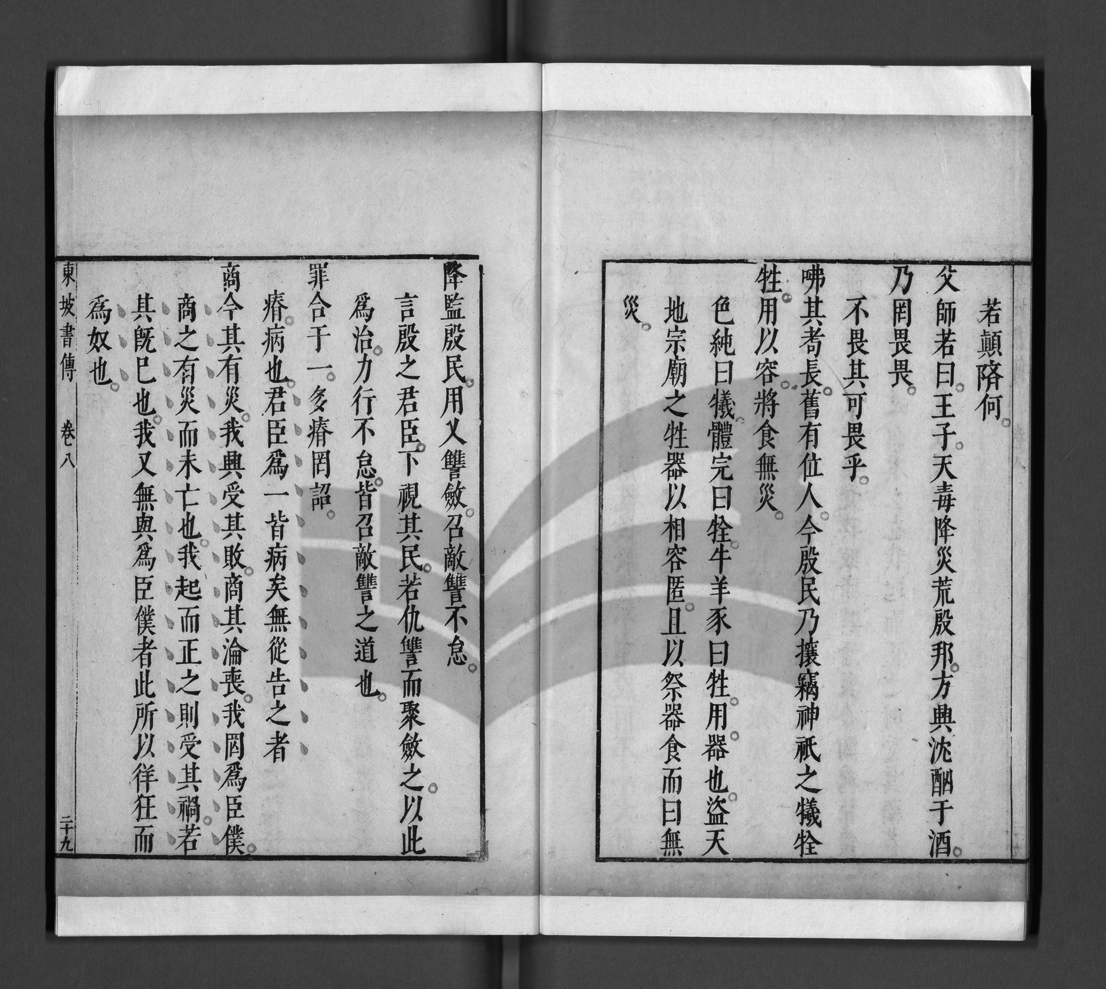 若顛隮何。
父師若曰。王子。天毒降災荒殷邦。方興沈酗于酒。
乃罔畏畏。
不畏其可畏乎。
咈其耇長。舊有位人。今殷民乃攘竊神祇之犧牷
牲。用以容。將食無災。
色純曰犧。體完曰牷。牛羊豕曰牲。用。器也。盜天
地宗廟之牲器以相容匿。且以祭器食而曰無
災。
降監殷民。用乂讐斂。召敵讐不怠。
言殷之君臣。下視其民。若仇讐而聚斂之。以此
爲治。力行不怠。皆召敵讐之道也。
罪合于一。多瘠罔詔。
瘠。病也。君臣爲一皆病矣無從告之者
商今其有災。我興受其敗。商其淪喪。我罔爲臣僕。
商之有災而未亡也。我起而正之則受其禍。若
其旣已也。我又無與爲臣僕者此所以徉狂而
爲奴也。
東坡書傳 卷八 二十九